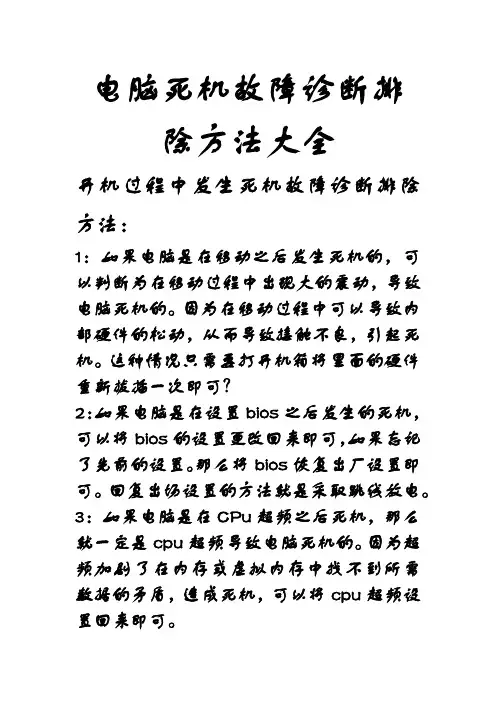 电脑死机故障诊断排
除方法大全
开机过程中发生死机故障诊断排除
方法：
1：如果电脑是在移动之后发生死机的，可
以判断为在移动过程中出现大的震动，导致
电脑死机的。因为在移动过程中可以导致内
部硬件的松动，从而导致接触不良，引起死
机。这种情况只需要打开机箱将里面的硬件
重新拔插一次即可？
2:如果电脑是在设置bios之后发生的死机，
可以将bios的设置更改回来即可，如果忘记
了先前的设置。那么将bios恢复出厂设置即
可。回复出场设置的方法就是采取跳线放电。
3：如果电脑是在CPu超频之后死机，那么
就一定是cpu超频导致电脑死机的。因为超
频加剧了在内存或虚拟内存中找不到所需
数据的矛盾，造成死机，可以将cpu超频设
置回来即可。